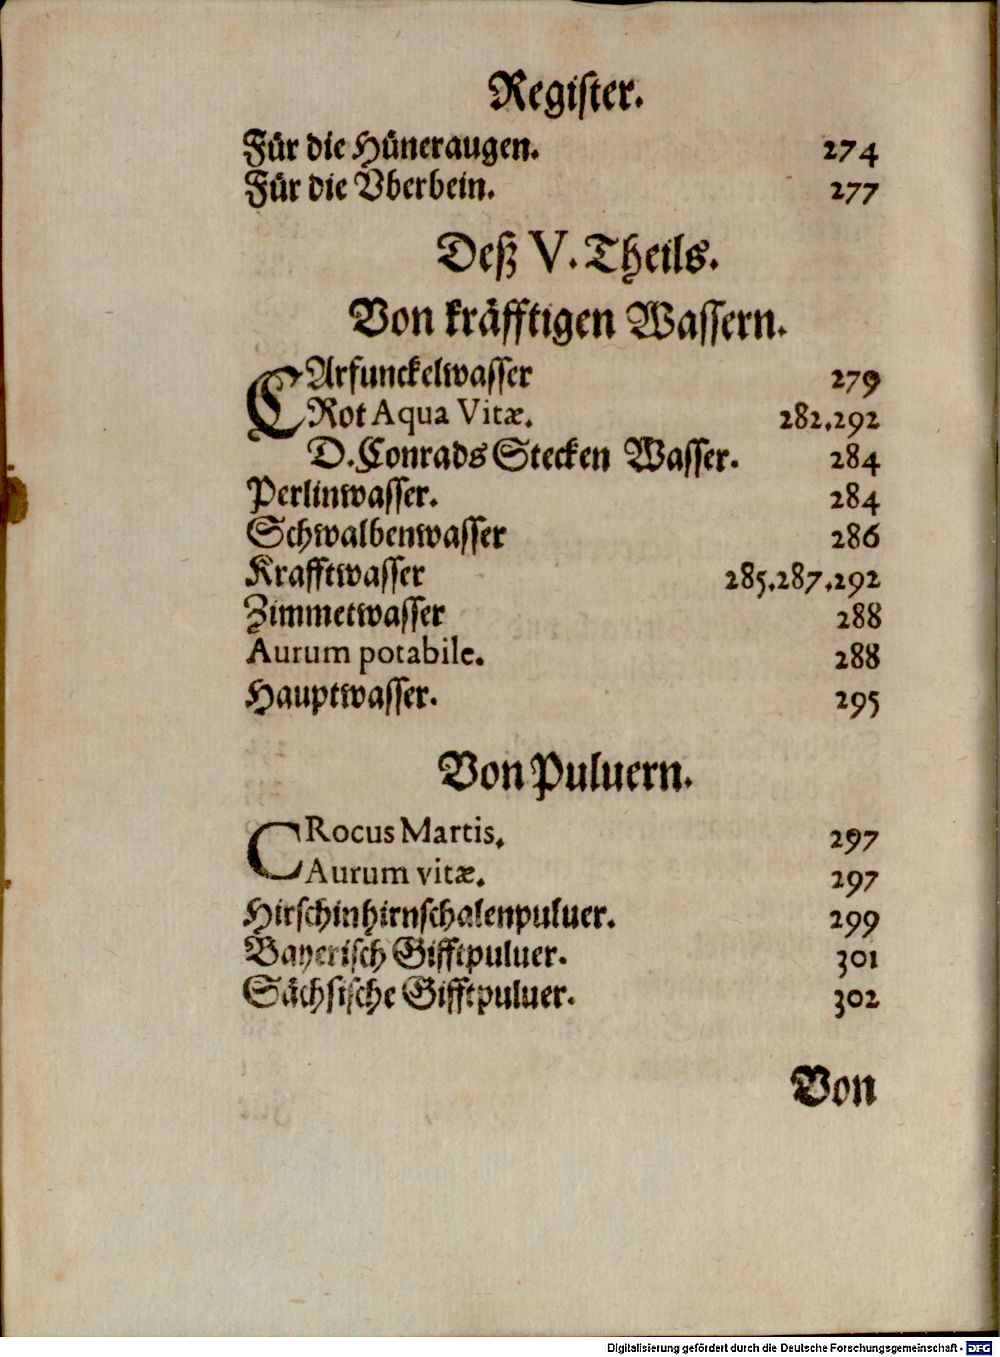 Register.
Für die Hüneraugen. 274
Für die Vberbein. 277
Deß V. Theils.
Von kräfftigen Wassern.
CArfunckelwasser 279
Rot Aqua Vitæ. 282.292
D. Conrads Stecken Wasser. 284
Perlinwasser. 284
Schwalbenwasser 286
Krafftwasser 285.287.292
Zimmetwasser 288
Aurum potabile. 288
Hauptwasser. 295
Von Puluern.
CRocus Martis. 297
Aurum vitæ. 297
Hirschinhirnschalenpuluer. 299
Bayerisch Gifftpuluer. 301
Sächsische Gifftpuluer. 302
Von
Digitalisierung gefördert durch die Deutsche Forschungsgemeinschaft - DFG